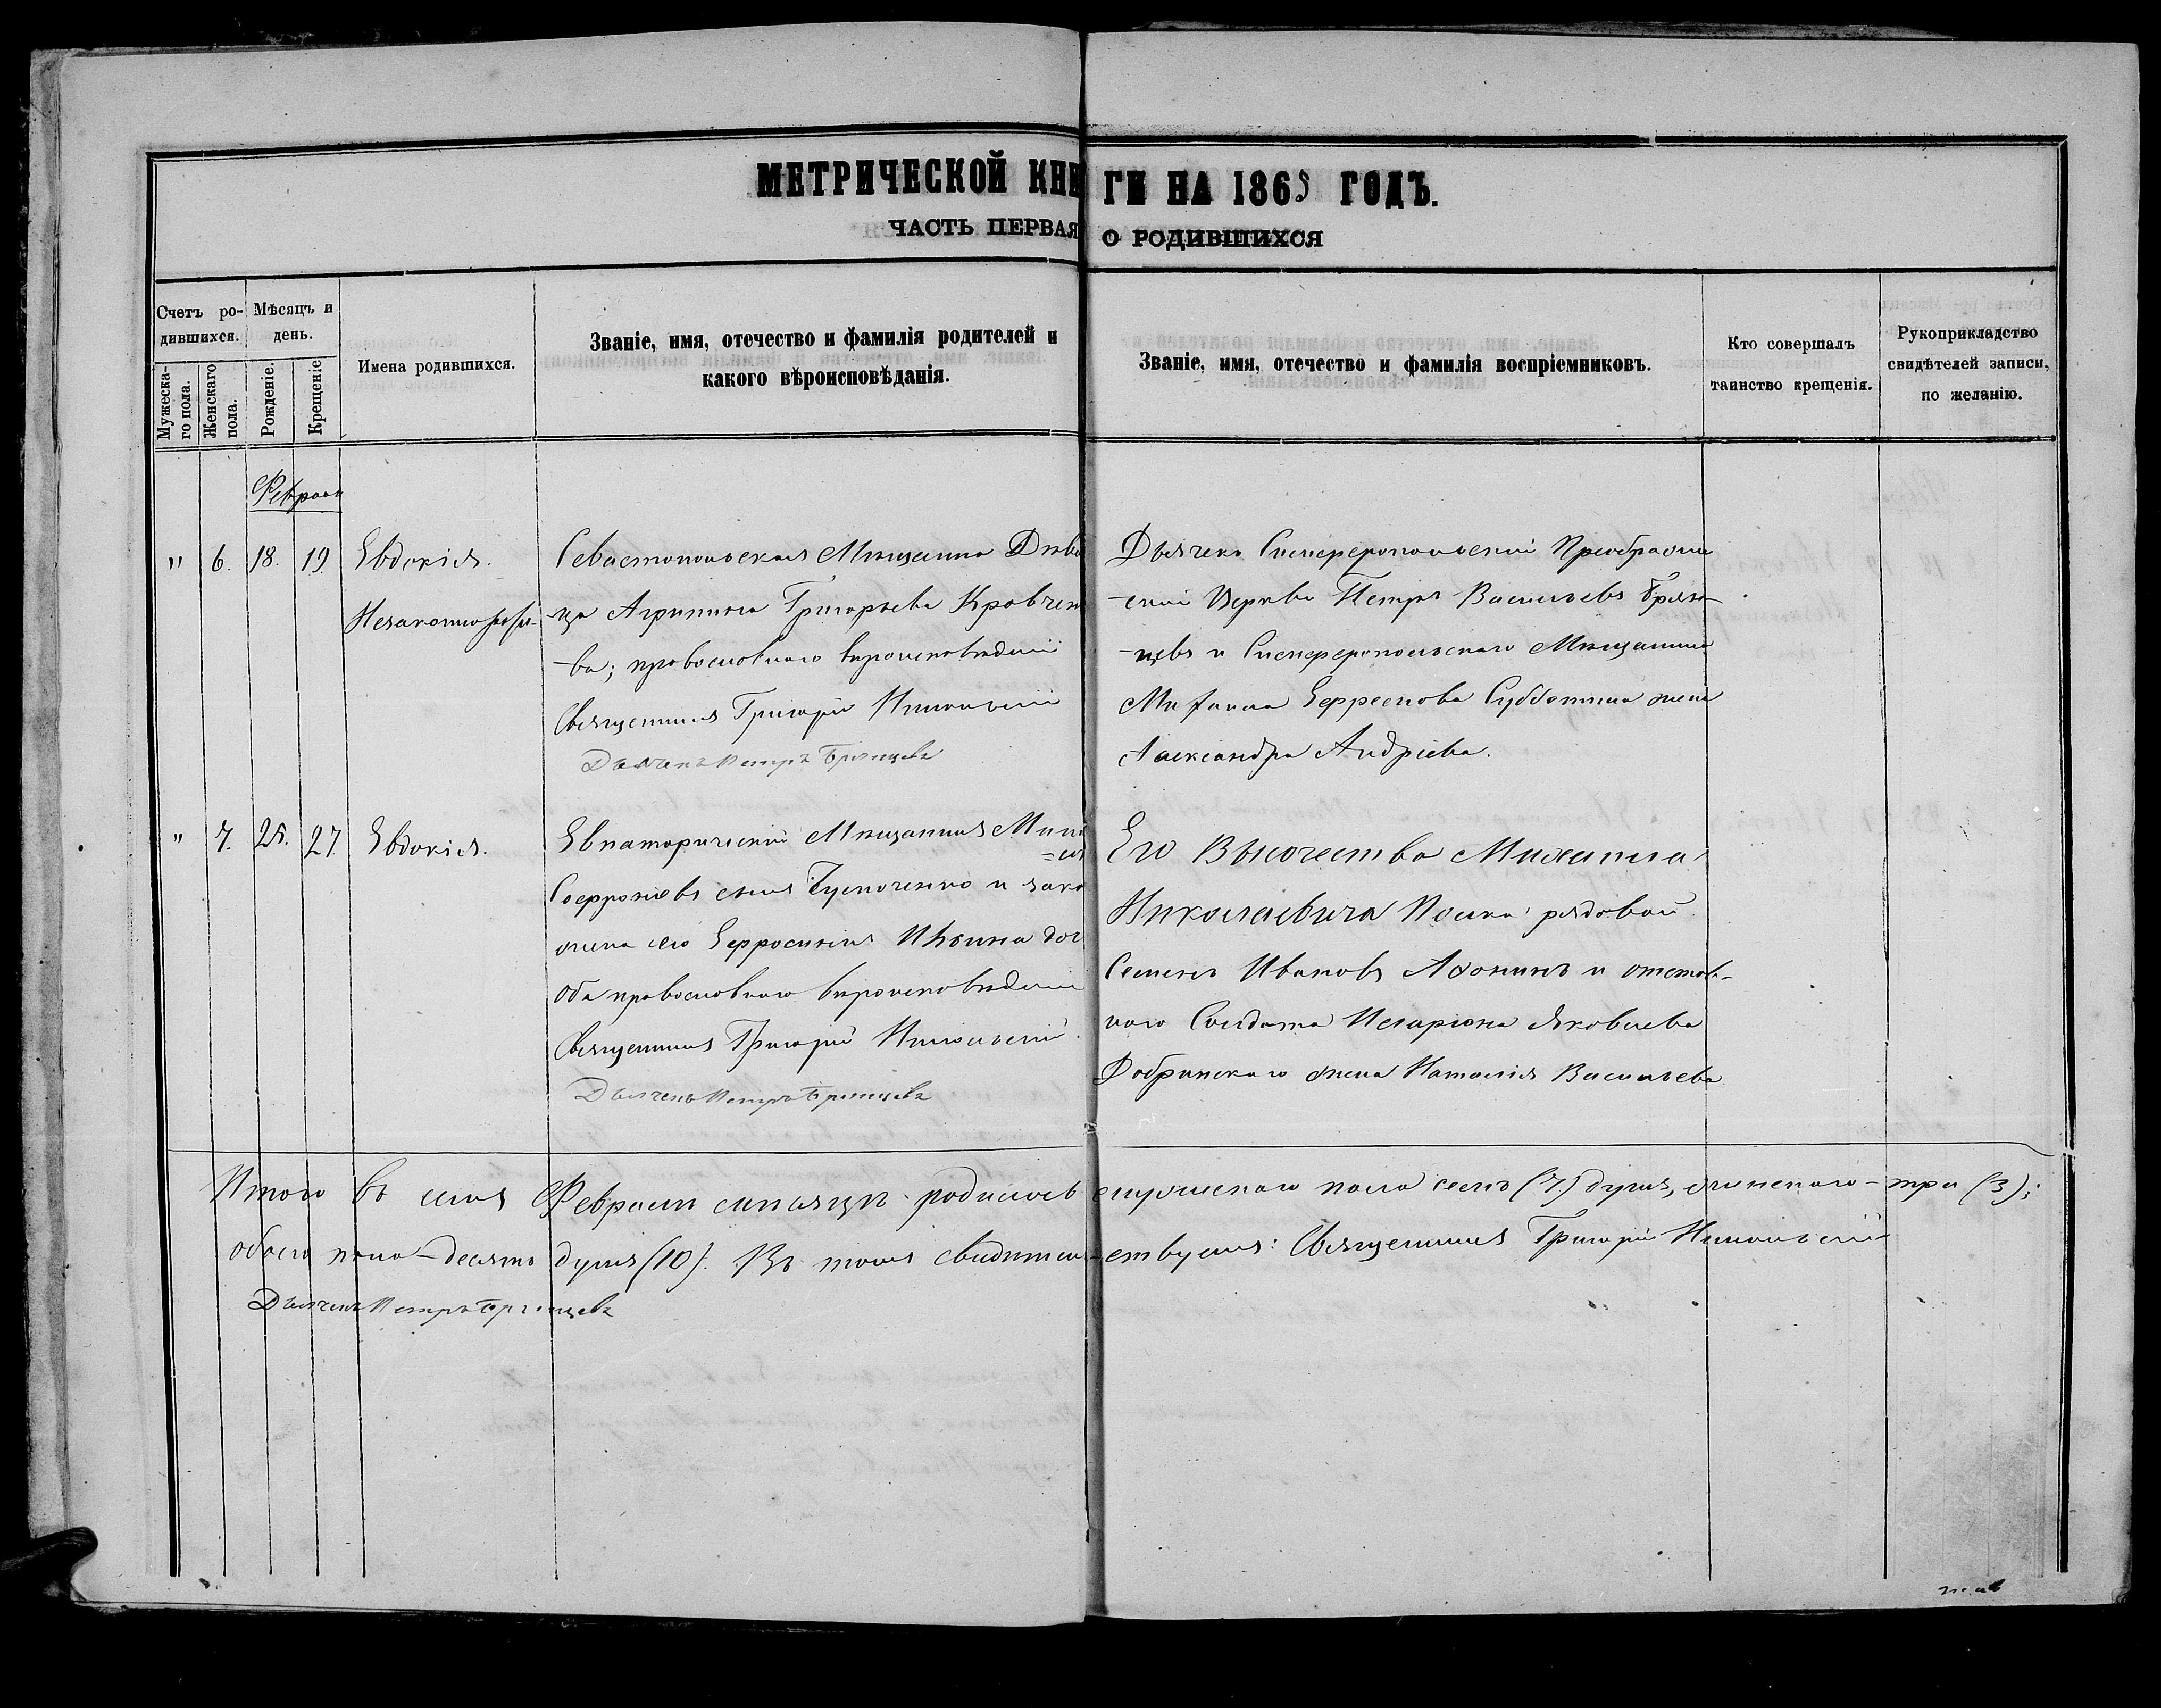 МЕТРИЧЕСКОЙ КНИГИ НА 1865 ГОДЪ.
ЧАСТЬ ПЕРВАЯ О РОДИВШИХСЯ
Счетъ ро-
дившихся.
Мужеска-
го пола.
Женскаго
пола.
Мѣсяцъ и
день.
Рожденіе.
Крещеніе
Имена родившихся.
Званіе, имя, отечество и фамилія родителей и
какого вѣроисповѣданія.
Званіе, имя, отечество и фамилія воспріемниковъ.
Кто совершалъ
таинство крещенія.
Рукоприкладство
свидѣтелей записи,
по желанію.
Февраль
" 6. 18. 19. Евдокія.
Севастопольская Мѣщанка Дѣви
-ца Агрипина Григорьева Кравчен
-ва; православнаго вѣроисповѣданія
Священникъ Григорій Никольскій
Дьячекъ Петръ Брянцевъ
Дьячекъ Симферопольской Преображен
-ской Церкви Петръ Васильевъ Брян-
-цевъ и Симферопольскаго Мѣщанина
Михаила Субботина жена
Александра Андріева.
" 7. 25. 27. Евдокія.
Евпаторійскій Мѣщанинъ
Софроніевъ сынъ и зако
жена его Ефросинія Ильина доч
оба православнаго вѣроисповѣданія
Священникъ Григорій Никольскій.
Дьячекъ Петръ Брянцевъ
Его Высочества Михаила
Николаевича Полка рядовой
Семенъ Ивановъ Афонинъ и отстав-
наго Солдата Иларіона Яковлева
Добринскаго жена Наталія Васильева
Итого въ семъ Февралѣ мѣсяцѣ родилось мужескаго пола семь (7) душъ, женскаго - три (3);
обоего пола - десять душъ (10). Въ томъ свидѣтельствуемъ: Священникъ Григорій Никольскій
Дьячекъ Петръ Брянцевъ